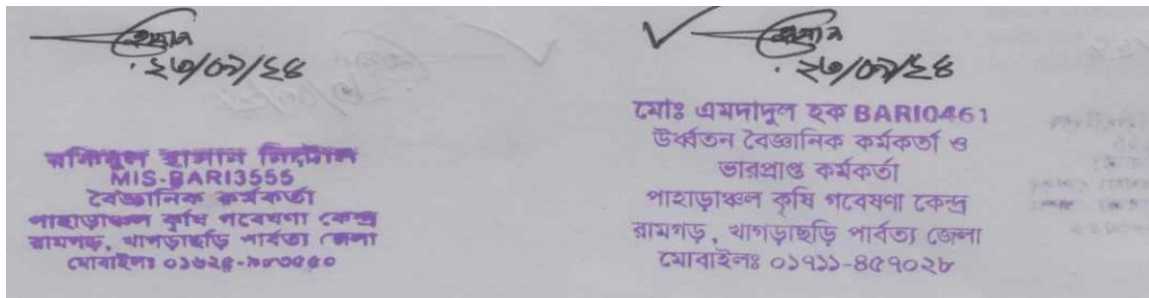 ২৩/০৯/২৪
হাসান
MIS-BARI3555
বৈজ্ঞানিক কর্মকর্তা
পাহাড়াঞ্চল কৃষি গবেষণা কেন্দ্র
রামগড়, খাগড়াছড়ি পার্বত্য জেলা
মোবাইলঃ
২৩/০৯/২৪
মোঃ এমদাদুল হক BARI0461
উর্ধ্বতন বৈজ্ঞানিক কর্মকর্তা ও
ভারপ্রাপ্ত কর্মকর্তা
পাহাড়াঞ্চল কৃষি গবেষণা কেন্দ্র
রামগড়, খাগড়াছড়ি পার্বত্য জেলা
মোবাইলঃ ০১৭১১-৪৫৭০২৮